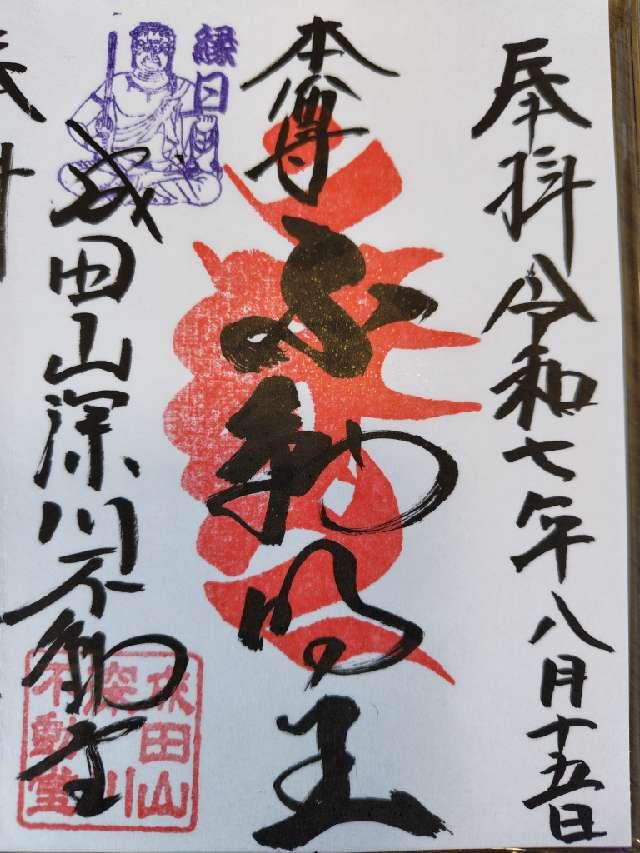 奉拝 令和七年八月十五日
本尊
不動明王
縁日
成田山深川不動堂
成田山
深川
不動堂
奉
拝